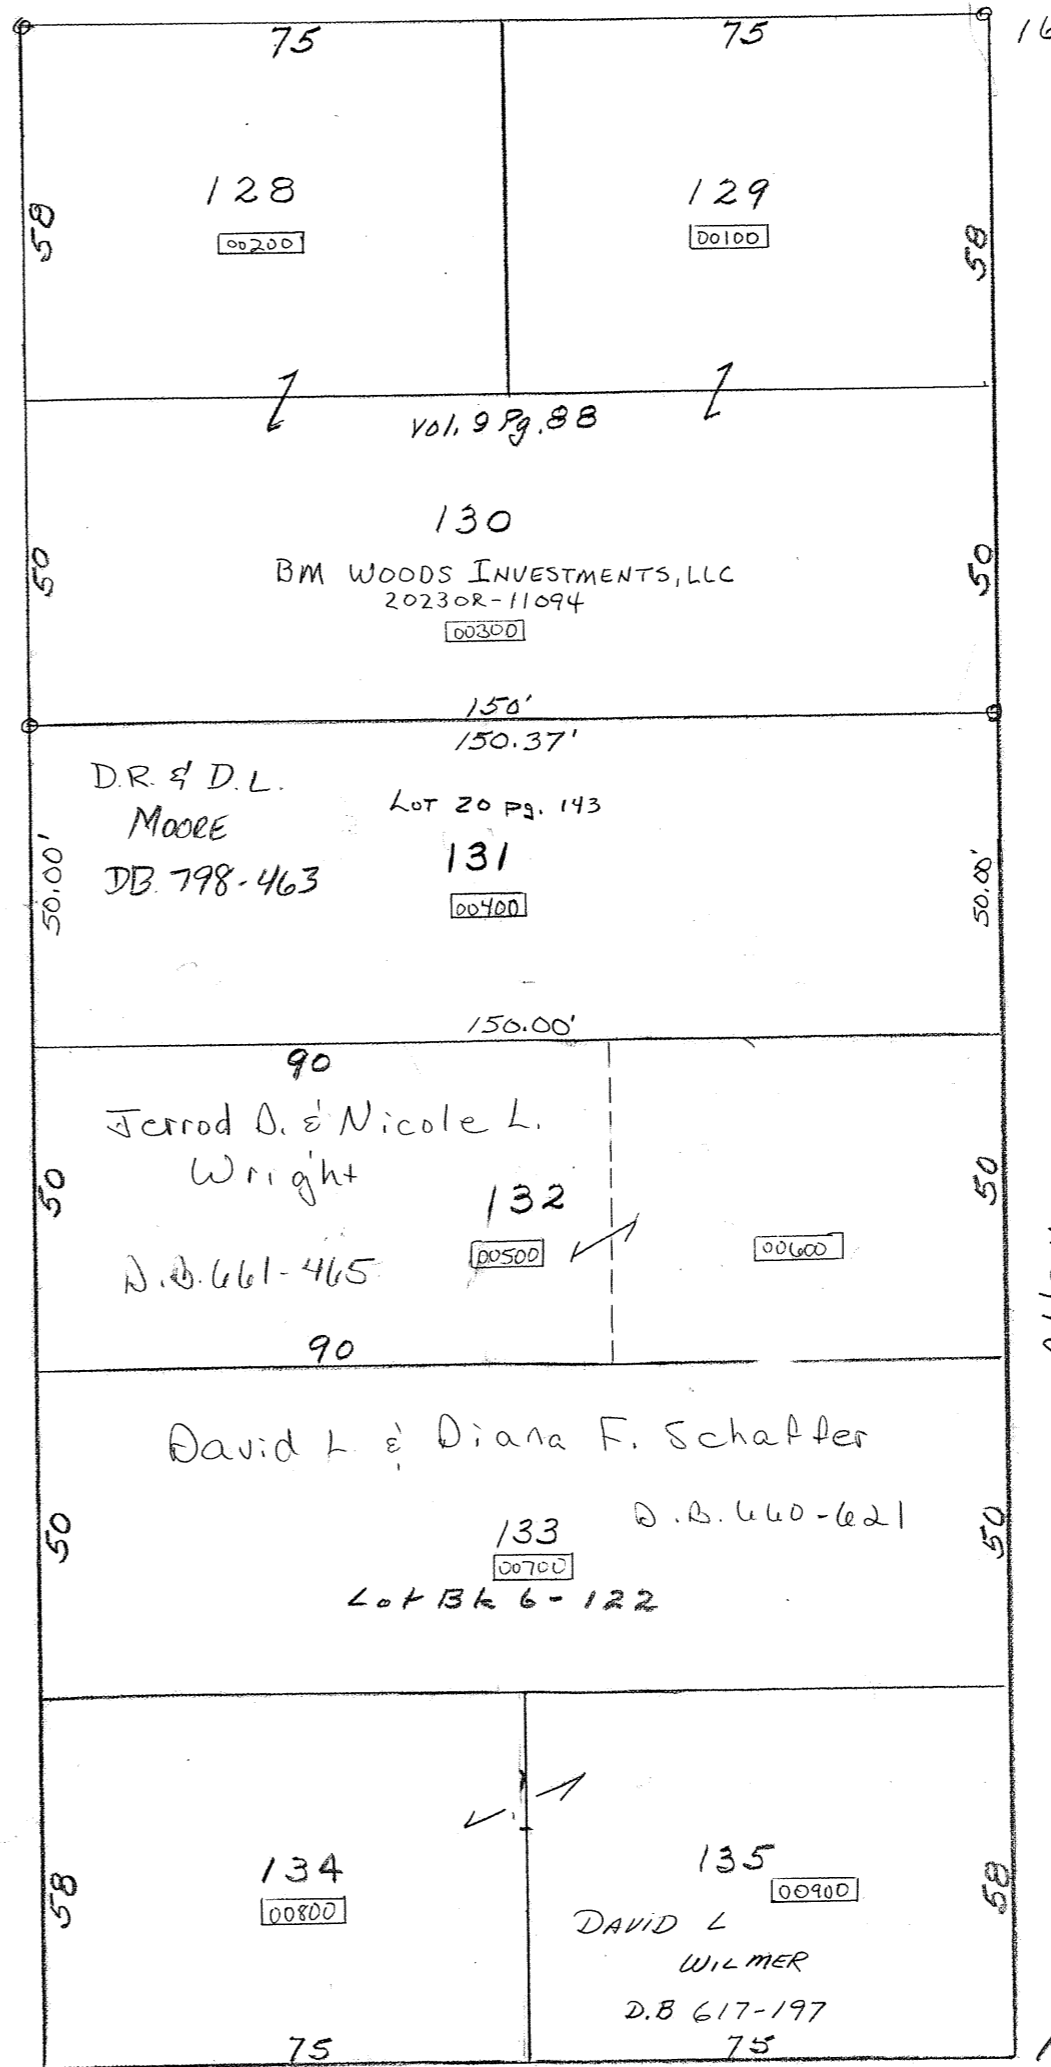 75 75
128 129
00200 00100
58 58
Vol. 9 Pg. 88
130
50 50
BM WOODS INVESTMENTS, LLC
2023OR-11094
00300
150'
150.37'
D.R. & D.L.
MOORE
DB. 798-463
LOT 20 pg. 143
131
00400
50.00' 50.00'
150.00'
90
Jerrod D. & Nicole L.
Wright
132
50 50
00500 00600
D.B. 661-465
90
David L. & Diana F. Schaffer
D.B. 660-621
50 50
133
00700
Lot Bk 6-122
134 135
00800 00900
58 58
DAVID L
WILMER
D.B 617-197
75 75